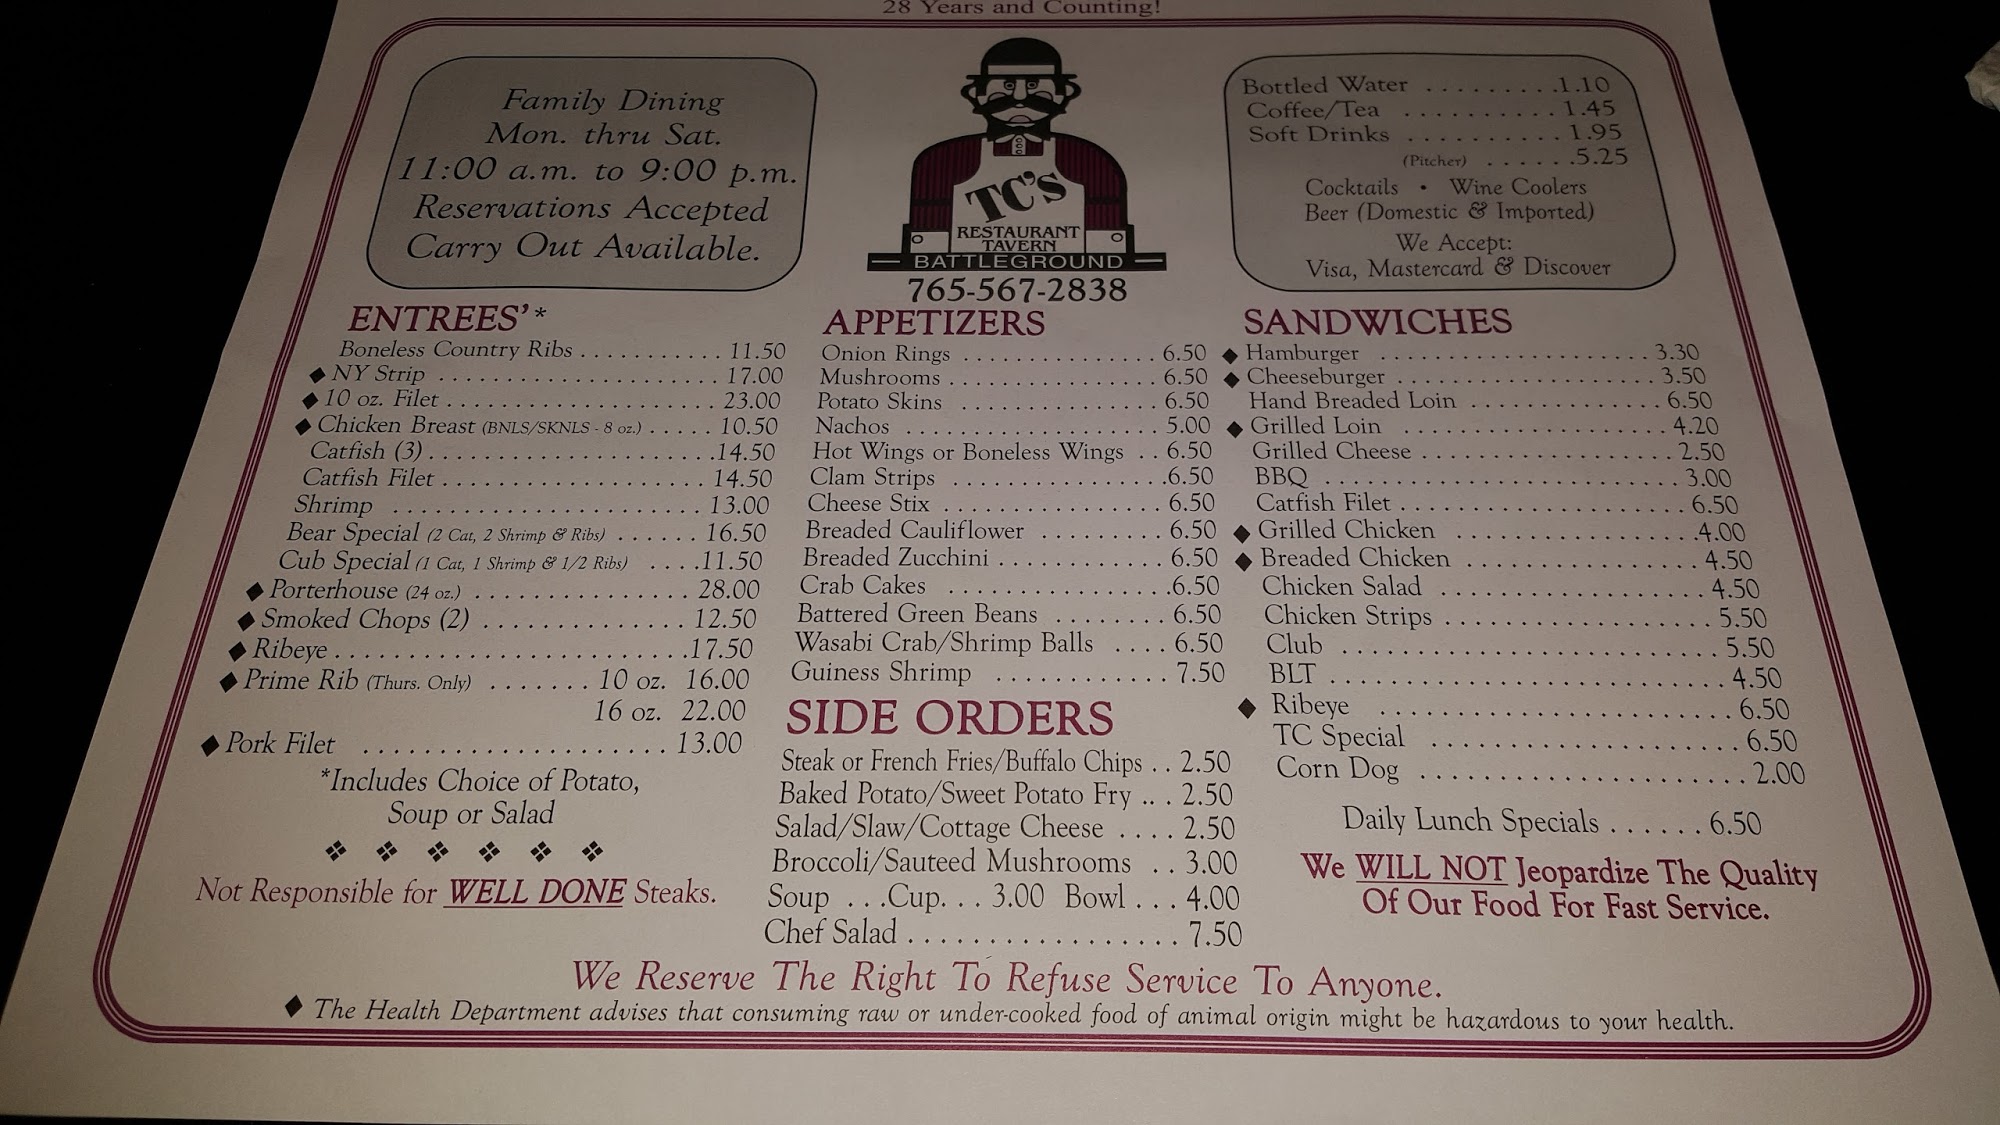 28 Years and Counting!
Family Dining
Mon. thru Sat.
11:00 a.m. to 9:00 p.m.
Reservations Accepted
Carry Out Available.
TC's
RESTAURANT
TAVERN
BATTLEGROUND
765-567-2838
Bottled Water .........1.10
Coffee/Tea .......... 1.45
Soft Drinks .......... 1.95
(Pitcher) ......5.25
Cocktails • Wine Coolers
Beer (Domestic & Imported)
We Accept:
Visa, Mastercard & Discover
ENTREES'*
Boneless Country Ribs ........... 11.50
◆ NY Strip ...................... 17.00
◆ 10 oz. Filet ..................... 23.00
◆ Chicken Breast (BNLS/SKNLS - 8 oz.) ..... 10.50
Catfish (3) ......................14.50
Catfish Filet .................... 14.50
Shrimp ........................ 13.00
Bear Special (2 Cat, 2 Shrimp & Ribs) ...... 16.50
Cub Special (1 Cat, 1 Shrimp & 1/2 Ribs) ....11.50
◆ Porterhouse (24 oz.) ................ 28.00
◆ Smoked Chops (2) .............. 12.50
◆ Ribeye ........................17.50
◆ Prime Rib (Thurs. Only) ....... 10 oz. 16.00
16 oz. 22.00
◆ Pork Filet ..................... 13.00
*Includes Choice of Potato,
Soup or Salad
❖ ❖ ❖ ❖ ❖ ❖
Not Responsible for WELL DONE Steaks.
APPETIZERS
Onion Rings ............... 6.50
Mushrooms ................ 6.50
Potato Skins ............... 6.50
Nachos .................... 5.00
Hot Wings or Boneless Wings .. 6.50
Clam Strips .................6.50
Cheese Stix ................. 6.50
Breaded Cauliflower ......... 6.50
Breaded Zucchini ............ 6.50
Crab Cakes .................6.50
Battered Green Beans ........ 6.50
Wasabi Crab/Shrimp Balls .... 6.50
Guiness Shrimp ............ 7.50
SIDE ORDERS
Steak or French Fries/Buffalo Chips .. 2.50
Baked Potato/Sweet Potato Fry ... 2.50
Salad/Slaw/Cottage Cheese .... 2.50
Broccoli/Sauteed Mushrooms .. 3.00
Soup ...Cup... 3.00 Bowl ... 4.00
Chef Salad ................. 7.50
SANDWICHES
◆ Hamburger ..................... 3.30
◆ Cheeseburger .................... 3.50
Hand Breaded Loin ............... 6.50
◆ Grilled Loin .................... 4.20
Grilled Cheese ................... 2.50
BBQ ........................... 3.00
Catfish Filet ...................... 6.50
◆ Grilled Chicken .................4.00
◆ Breaded Chicken ................ 4.50
Chicken Salad .................... 4.50
Chicken Strips ................... 5.50
Club ........................... 5.50
BLT ............................ 4.50
◆ Ribeye ........................ 6.50
TC Special ..................... 6.50
Corn Dog ...................... 2.00
Daily Lunch Specials ...... 6.50
We WILL NOT Jeopardize The Quality
Of Our Food For Fast Service.
We Reserve The Right To Refuse Service To Anyone.
◆ The Health Department advises that consuming raw or under-cooked food of animal origin might be hazardous to your health.